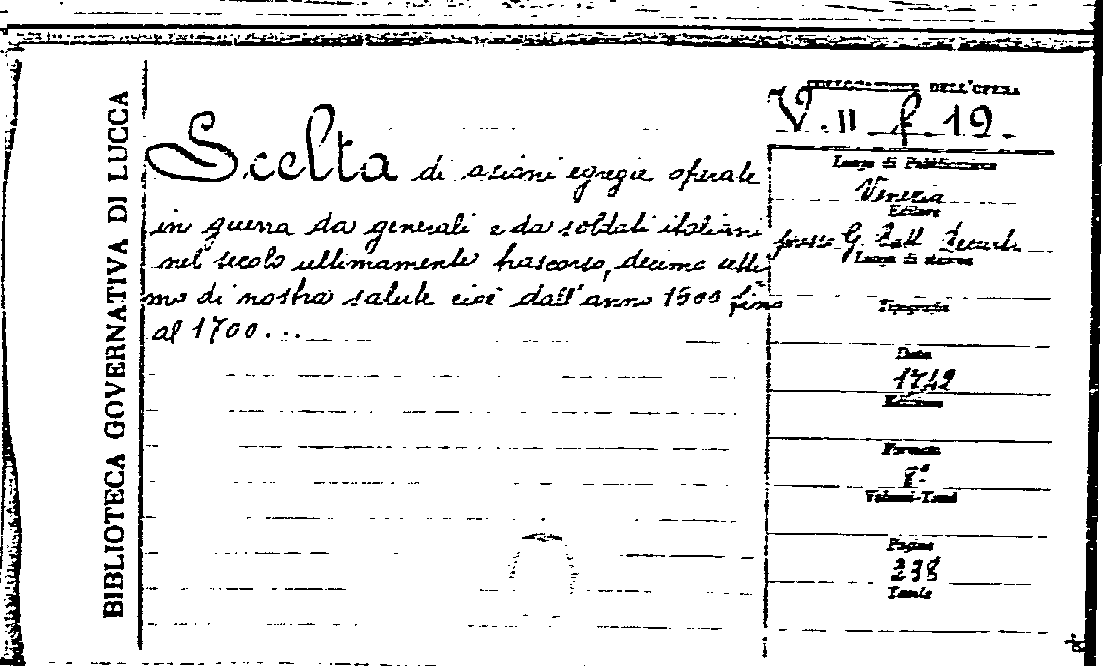 BIBLIOTECA GOVERNATIVA DI LUCCA
DELL'OPERA
V. II f. 19.
Scelta di azioni egregie operate
in guerra da generali e da soldati italiani
nel secolo ultimamente trascorso, decimo setti
mo di nostra salute cioè dall'anno 1600 fino
al 1700...
Luogo di Pubblicazione
Venezia
Editore
presso G. Batt.
Luogo di stampa
Tipografia
Data
1742
Edizione
Formato
8°
Volumi-Tomi
Pagine
238
Tavole